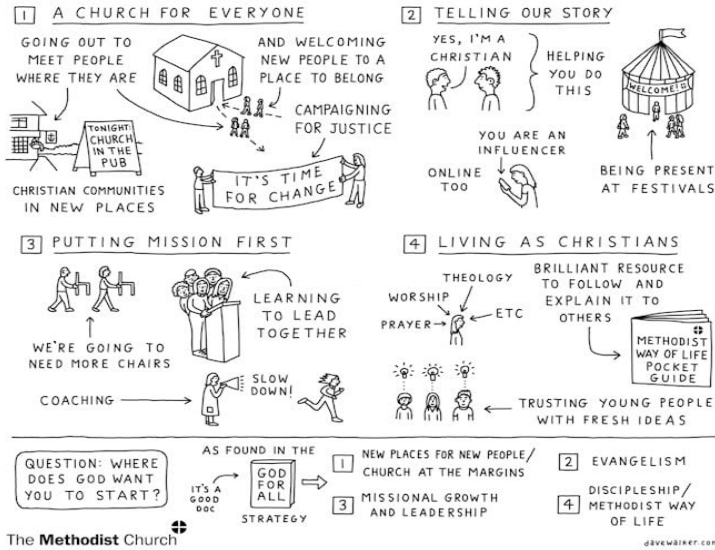 1 A CHURCH FOR EVERYONE
GOING OUT TO
MEET PEOPLE
WHERE THEY ARE
AND WELCOMING
NEW PEOPLE TO A
PLACE TO BELONG
CAMPAIGNING
FOR JUSTICE
TONIGHT:
CHURCH
IN THE
PUB
IT'S TIME
FOR CHANGE
CHRISTIAN COMMUNITIES
IN NEW PLACES
2 TELLING OUR STORY
YES, I'M A
CHRISTIAN
HELPING
YOU DO
THIS
WELCOME!
YOU ARE AN
INFLUENCER
ONLINE
TOO
BEING PRESENT
AT FESTIVALS
3 PUTTING MISSION FIRST
LEARNING
TO LEAD
TOGETHER
WE'RE GOING TO
NEED MORE CHAIRS
COACHING
SLOW
DOWN!
4 LIVING AS CHRISTIANS
THEOLOGY
WORSHIP
PRAYER
ETC
BRILLIANT RESOURCE
TO FOLLOW AND
EXPLAIN IT TO
OTHERS
METHODIST
WAY OF LIFE
POCKET
GUIDE
TRUSTING YOUNG PEOPLE
WITH FRESH IDEAS
QUESTION: WHERE
DOES GOD WANT
YOU TO START?
AS FOUND IN THE
IT'S A
GOOD
DOC
GOD
FOR
ALL
STRATEGY
1 NEW PLACES FOR NEW PEOPLE/
CHURCH AT THE MARGINS
2 EVANGELISM
3 MISSIONAL GROWTH
AND LEADERSHIP
4 DISCIPLESHIP/
METHODIST WAY
OF LIFE
The Methodist Church
davewalker.com